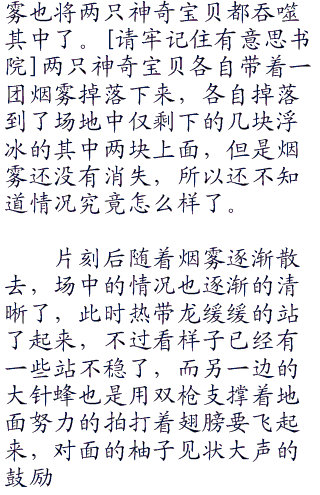 雾也将两只神奇宝贝都吞噬
其中了。[请牢记住有意思书
院]两只神奇宝贝各自带着一
团烟雾掉落下来，各自掉落
到了场地中仅剩下的几块浮
冰的其中两块上面，但是烟
雾还没有消失，所以还不知
道情况究竟怎么样了。
片刻后随着烟雾逐渐散
去，场中的情况也逐渐的清
晰了，此时热带龙缓缓的站
了起来，不过看样子已经有
一些站不稳了，而另一边的
大针蜂也是用双枪支撑着地
面努力的拍打着翅膀要飞起
来，对面的柚子见状大声的
鼓励